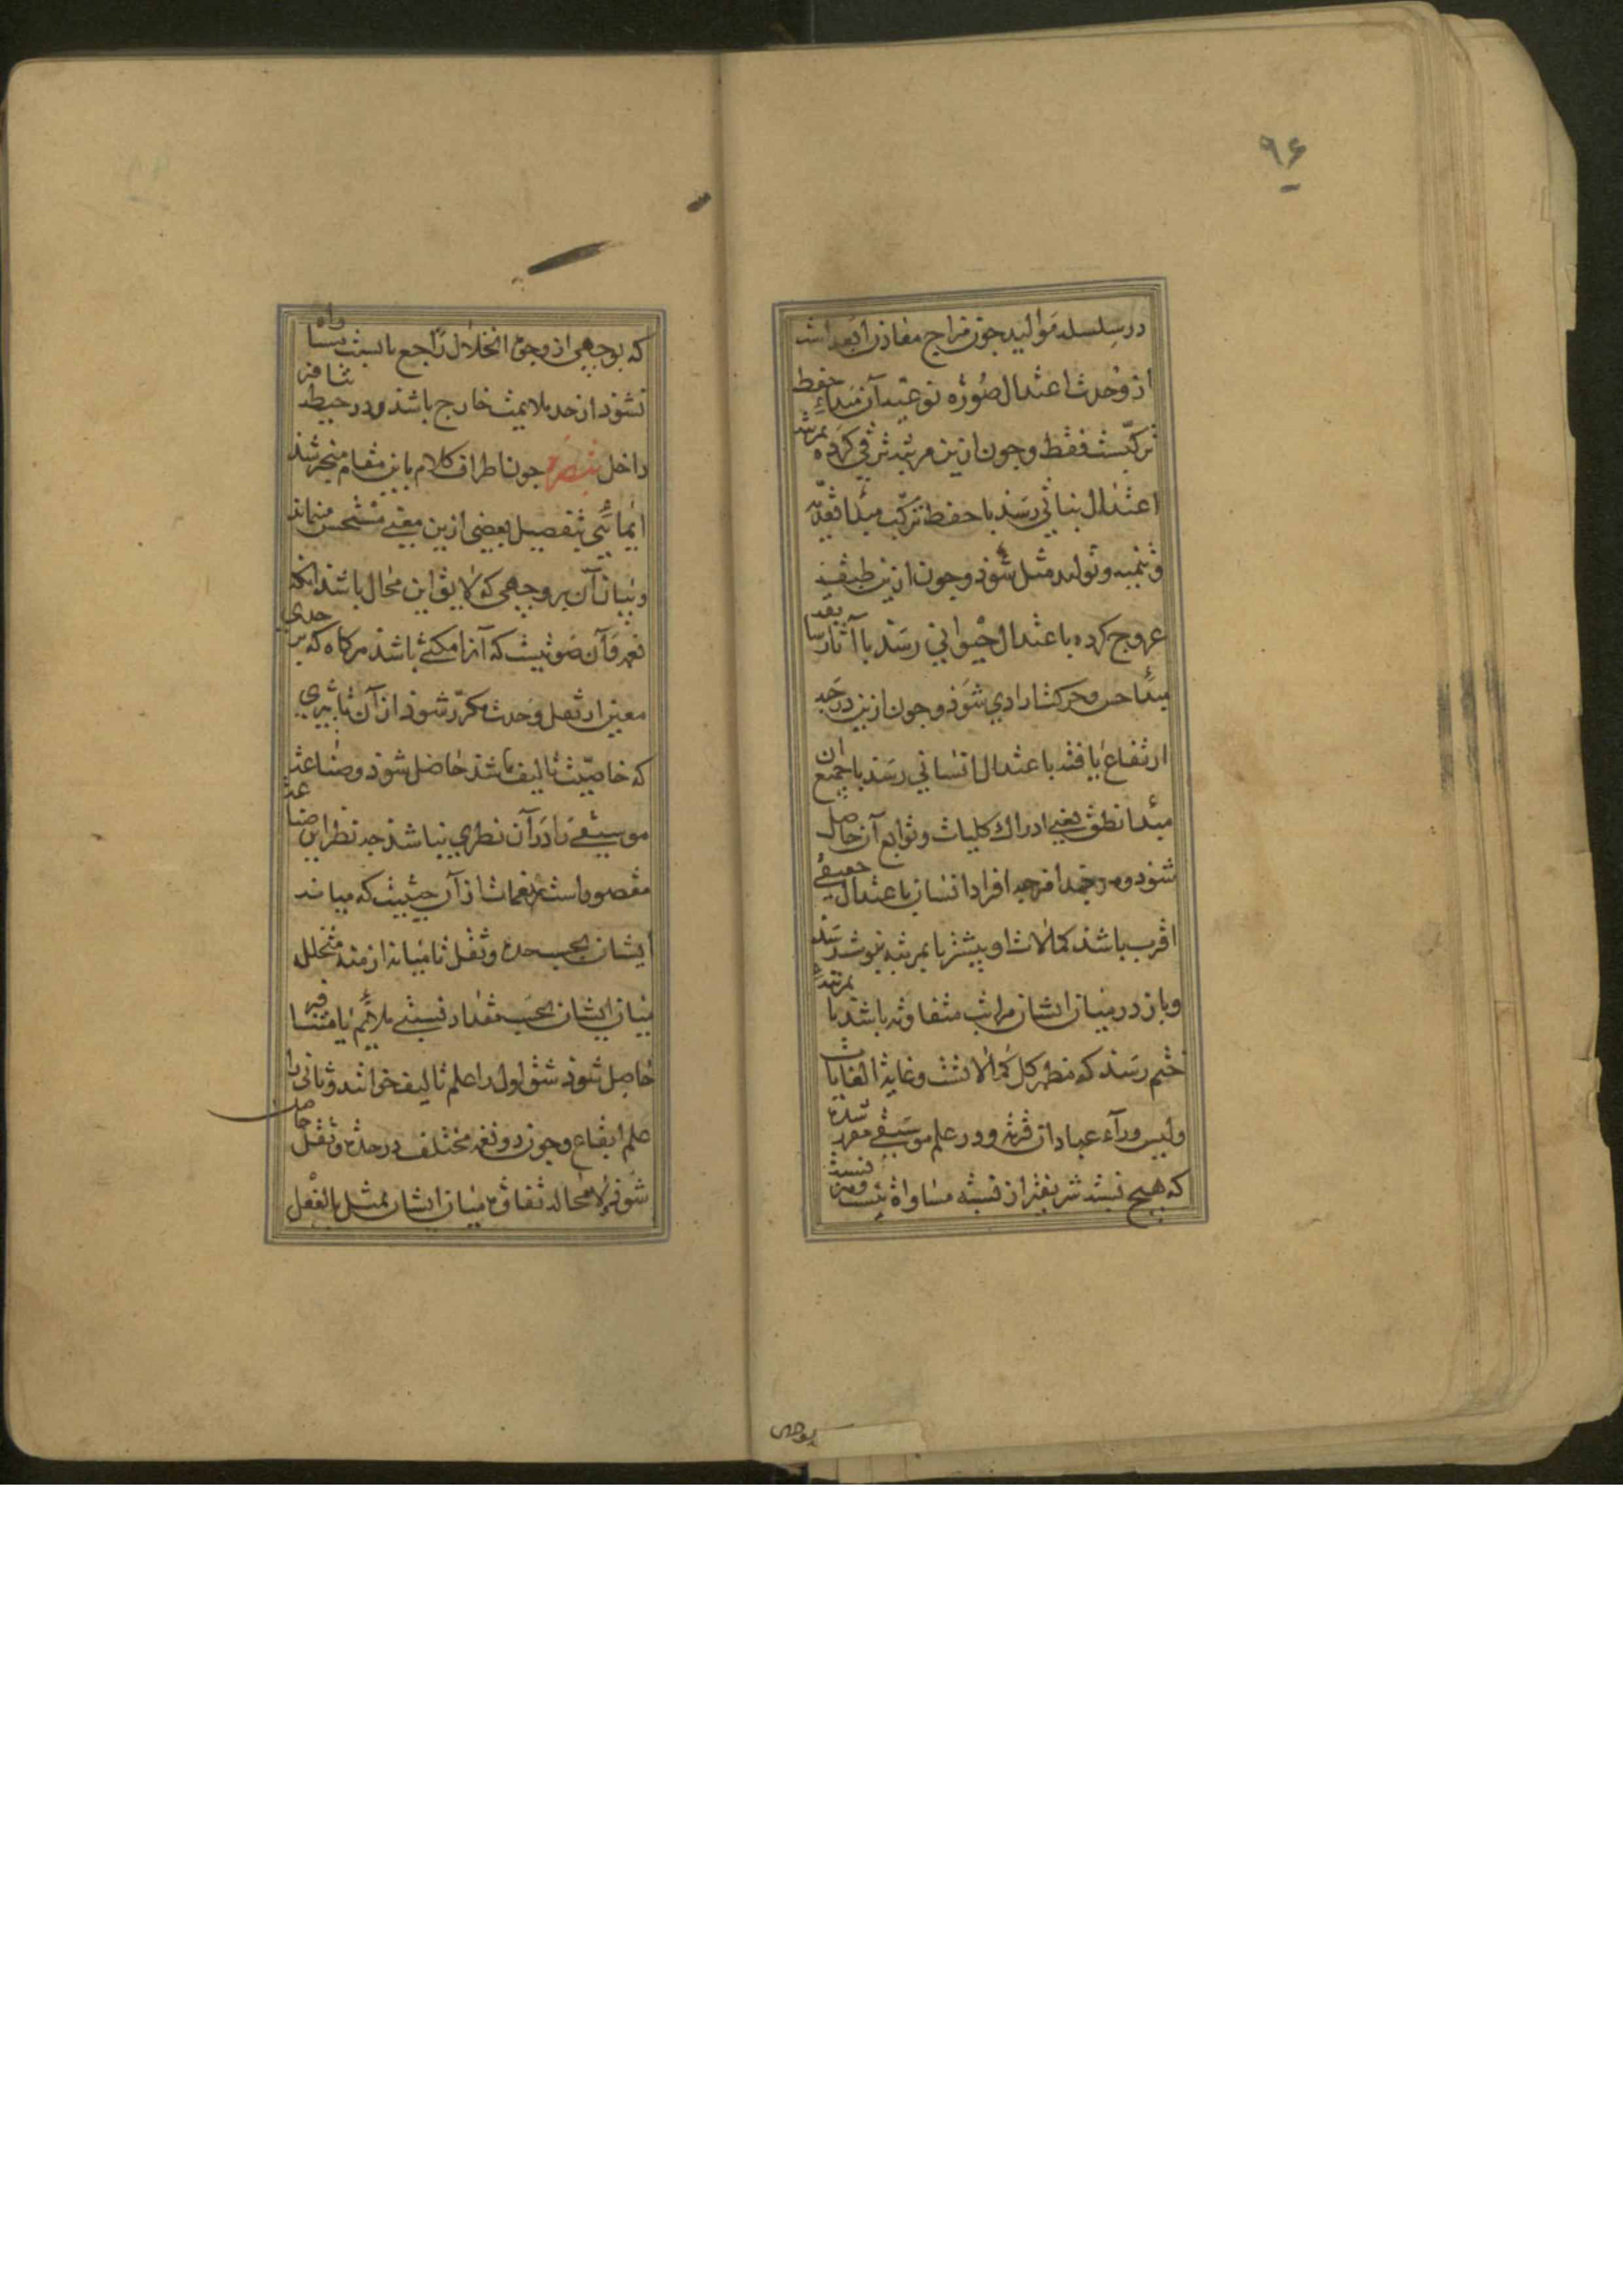 ۹۶
در سلسله موالید چون مزاج معادن ابعد است
از وحدت اعتدال صوره نوعیه آن مبداء حفظ
ترکیبست فقط و چون ازین مرتبه ترقی کرده بمرتبه
اعتدال نباتی رسد با حفظ ترکیب مبدا تغذیه
و تنمیه و تولید مثل شود و چون ازین طبقه
عروج کرده باعتدال حیوانی رسد با آثار سابقه
مبدا حس و حرکت ارادی شود و چون ازین درجه
ارتفاع یافته باعتدال انسانی رسد با جمیع آن
مبدا نطق یعنی ادراک کلیات و توابع آن حاصل
شود و هر چند امزجه افراد انسان باعتدال حقیقی
اقرب باشد کمالات او بیشتر تا بمرتبه نبوت رسد
و باز در میان ایشان مراتب متفاوته باشد تا بمرتبه
ختم رسد که مظهر کل کمالاتست و غایة الغایات
ولیس ورآء عبادان قریة و در علم موسیقی مقرر شده
که هیچ نسبت شریفتر از نسبت مساواة نیست و هر نسبت
بوجهی
که بوجهی از وجوه انحلال راجع با نسبت مساواه
نشود از حد ملایمت خارج باشد و در حیطه تنافر
داخل تبصره چون اطراف کلام باین مقام منجر شد
ایمائی بتفصیل بعضی ازین معنی مستحسن مینماید
و بیان آن بر وجهی که لایق این محال باشد آنکه
نغمه و آن صوتیست که آنرا مکثی باشد هرگاه که بر حدی
معین از ثقل و حدت مکرر شود از آن تاثیری
که خاصیت تالیف باشد حاصل شود و صناعت
موسیقی را در آن نظری نباشد چه نظر این صناعت
مقصور است بر نغمات از آن حیثیت که میانه
ایشان بحسب حدة و ثقل تا میانه ازمنه متخلله
میان ایشان بحسب مقدار نسبتی ملایم یا متنافر
حاصل شود شق اول را علم تالیف خوانند و ثانی را
علم ایقاع و چون دو نغمه مختلف در حدة و ثقل حاصل
شود لا محاله تفاوت میان ایشان بمثل بالفعل